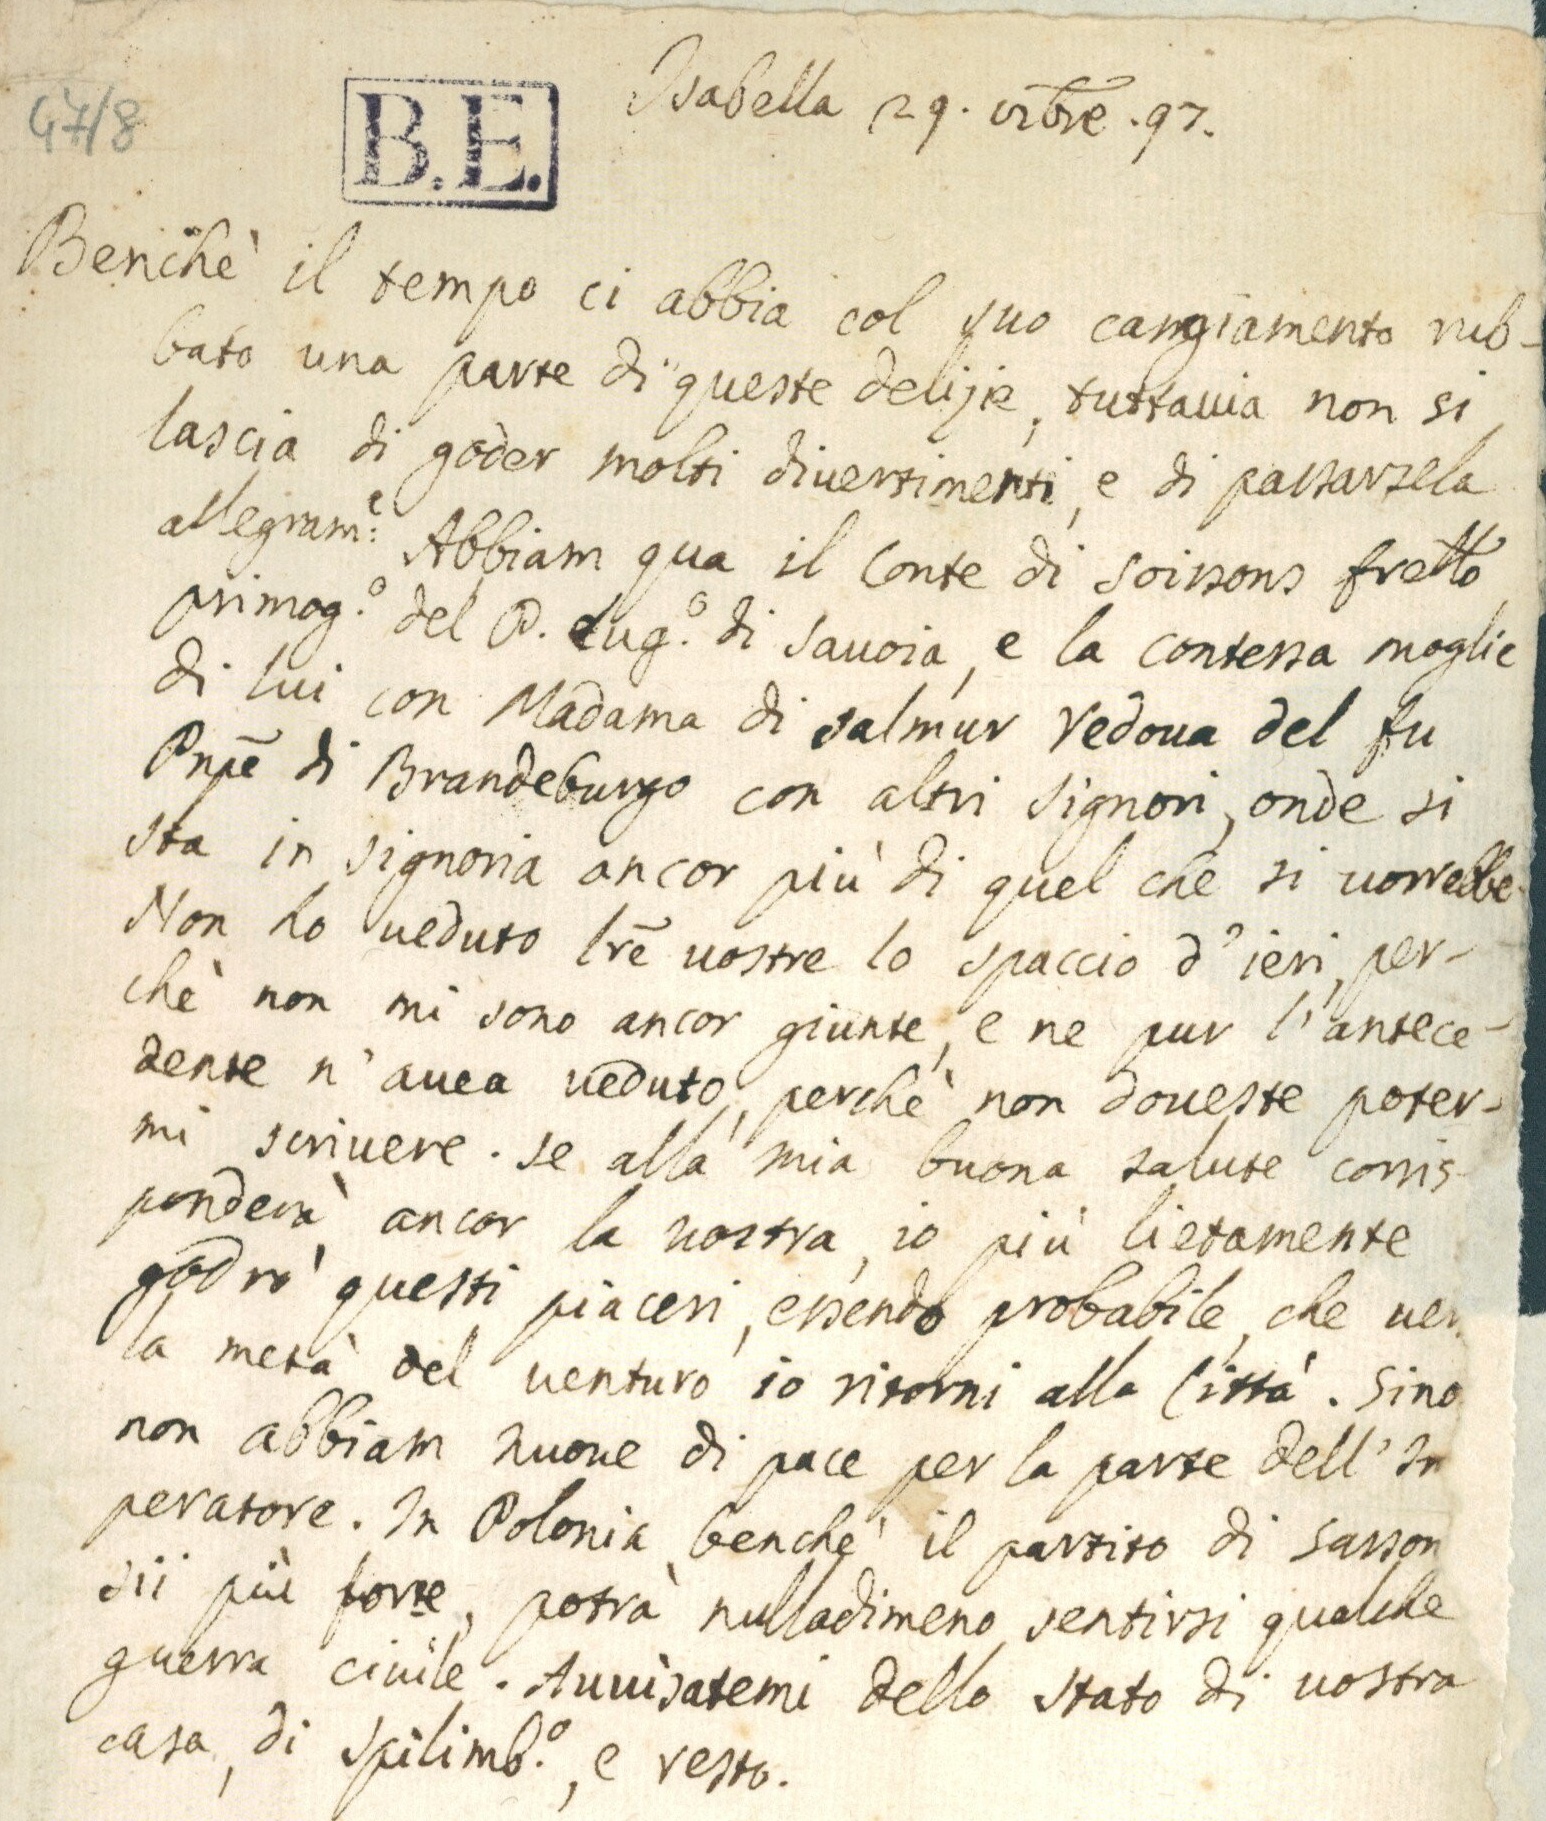 47/8
B.E.
Isabella 29. 7bre. 97.
Benchè il tempo ci abbia col suo cangiamento rub-
bato una parte di queste delizie, tuttauia non si
lascia di goder molti diuertimenti, e di passarsela
allegram.e Abbiam qua il Conte di Soissons fretto
primog.o del P. Eug.o di Sauoia, e la Contessa moglie
di lui con Madama di Salmur Vedoua del fu
Pnpe di Brandeburgo con altri Signori, onde si
sta in signoria ancor più di quel che si uorrebbe.
Non ho ueduto lre uostre lo spaccio d'ieri, per-
chè non mi sono ancor giunte, e ne pur l'antece-
dente n'auea ueduto, perchè non doueste poter-
mi scriuere. Se alla mia buona salute corris-
ponderà ancor la uostra, io più lietamente
godrò questi piaceri, essendo probabile, che uer
la metà del uenturo io ritorni alla Città. Sino
non abbiam nuoue di pace per la parte dell'Im
peratore. In Polonia benchè il partito di Sasson
sii più forte, potrà nulladimeno sentirsi qualche
guerra ciuile. Auuisatemi dello stato di uostra
casa, di Spilimb.o, e resto.